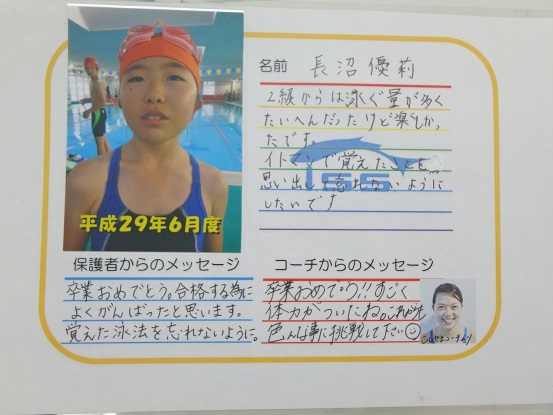 名前 長沼優莉
2級からは泳ぐ量が多く
たいへんだったけど楽しかっ
たです。
イトマンで覚えたことを
思い出して忘れないように
したいです
ISS
平成29年6月度
保護者からのメッセージ
卒業おめでとう。合格する為に
よくがんばったと思います。
覚えた泳法を忘れないように。
コーチからのメッセージ
卒業おめでとう!!すごく
体力がついたね。これからも
色んな事に挑戦して下さい